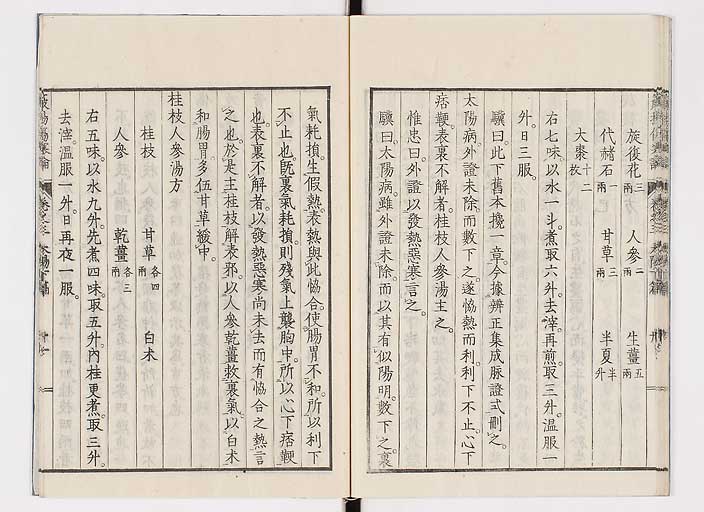 旋後花三兩　人參二兩　生薑五兩
代赭石一兩　甘草三兩　半夏半升
大棗十二枚
右七味以水一斗煮取六升去滓再煎取三升溫服一
升日三服
驥曰此下舊本攙一章今據辨正集成脉證式刪之
太陽病外證未除而數下之遂恊熱而利利下不止心下
痞鞕表裏不解者桂枝人參湯主之
惟忠曰外證以發熱惡寒言之
驥曰太陽病雖外證未除而以其有似陽明數下之裏
氣耗損生假熱表熱與此恊合使腸胃不和所以利下
不止也既裏氣耗損則殘氣上襲胸中所以心下痞鞕
也表裏不解者以發熱惡寒尚未去而有恊合之熱言
之也於是主桂枝解表邪以人參乾薑救裏氣以白朮
和腸胃多伍甘草緩中
桂枝人參湯方
桂枝　甘草各四兩　白朮
人參　乾薑各三兩
右五味以水九升先煮四味取五升內桂更煮取三升
去滓溫服一升日再夜一服